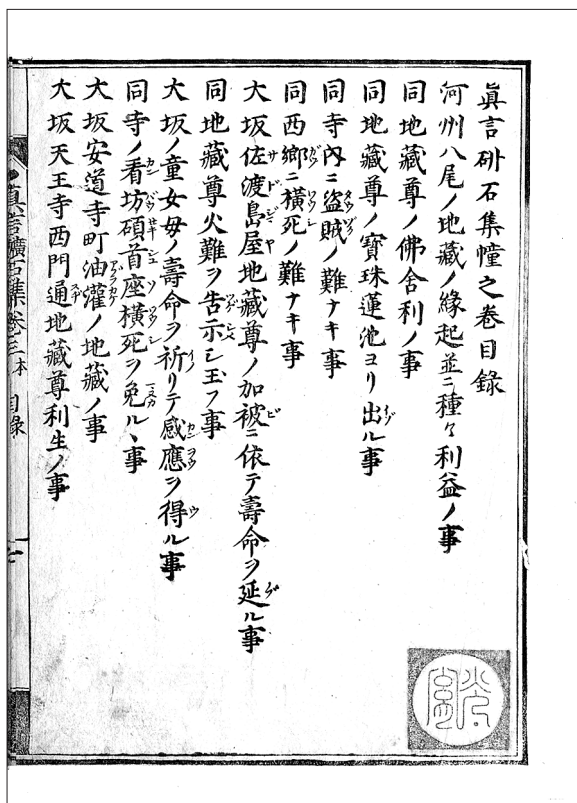 眞言礦石集幢之卷目錄
河州八尾ノ地藏ノ緣起並ニ種々利益ノ事
同地藏尊ノ佛舍利ノ事
同地藏尊ノ寶珠蓮池ヨリ出ル事
同寺內ニ盜賊ノ難ナキ事
同西鄕ニ橫死ノ難ナキ事
大坂佐渡島屋地藏尊ノ加被ニ依テ壽命ヲ延ル事
同地藏尊火難ヲ告示シ玉フ事
大坂ノ童女母ノ壽命ヲ祈リテ感應ヲ得ル事
同寺ノ看坊碩首座橫死ヲ免ルヽ事
大坂安道寺町油灌ノ地藏ノ事
大坂天王寺西門通地藏尊利生ノ事
眞言礦石集卷三本 目錄 一